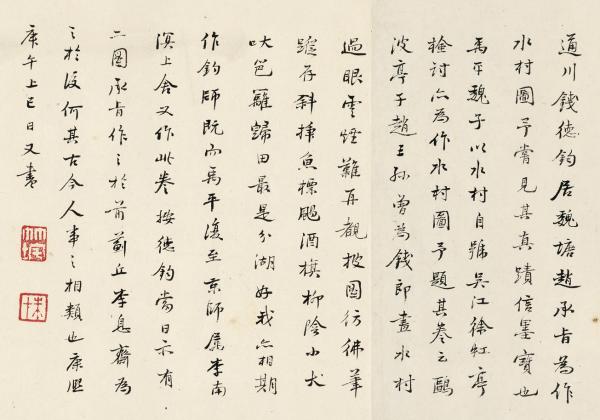 通川錢德鈞居魏塘趙承旨為作
水村圖予嘗見其真蹟信墨寶也
禹平魏子以水村自號吳江徐虹亭
檢討亦為作水村圖予題其卷云鷗
波亭子趙王孫曾為錢郎畫水村
過眼雲煙難再觀披圖彷彿筆
蹤存斜插魚標颺酒旗柳陰小犬
吠笆籬歸田最是分湖好我亦相期
作釣師既而禹平復至京師屬李南
溟上舍又作此卷按德鈞當日亦有
二圖承旨作之於前薊丘李息齋為
之於後何其古今人事之相類也康熙
庚午上巳日又書
竹垞